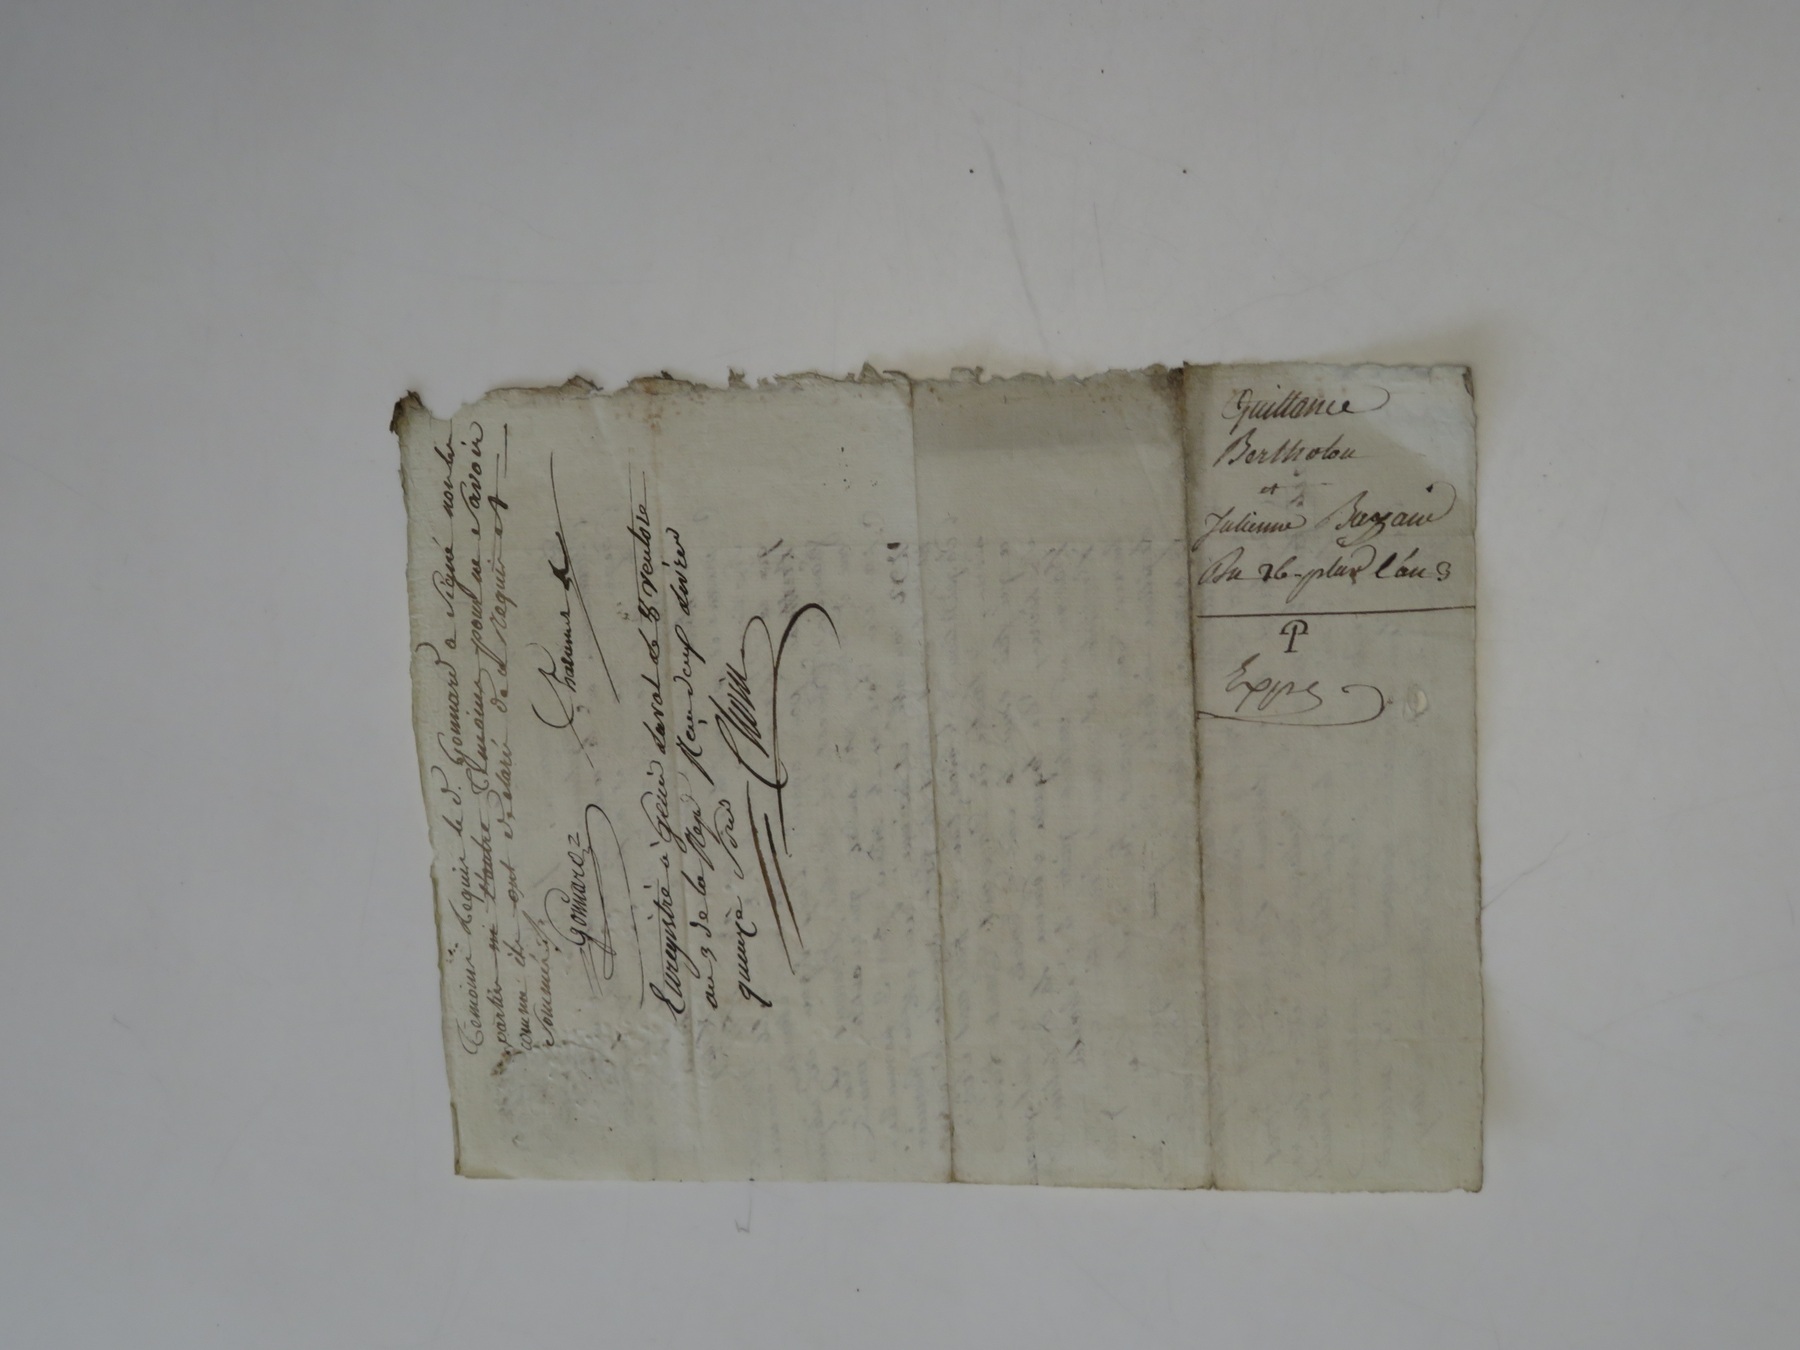 Temoins Requis le d. Gonnard a signé non les
parties ni l'autre Temoins pour ne savoir
comme ils ont déclaré de ce Requis et
Sommés
Gonnard
Enregistré à Genis Laval le 8 ventose
an 3 de la Rep Reçu deux livres
quinze sous
Quittance
Bertholon
et
Julienne Bazain
Du 26 pluv l'an 3
P
Exp